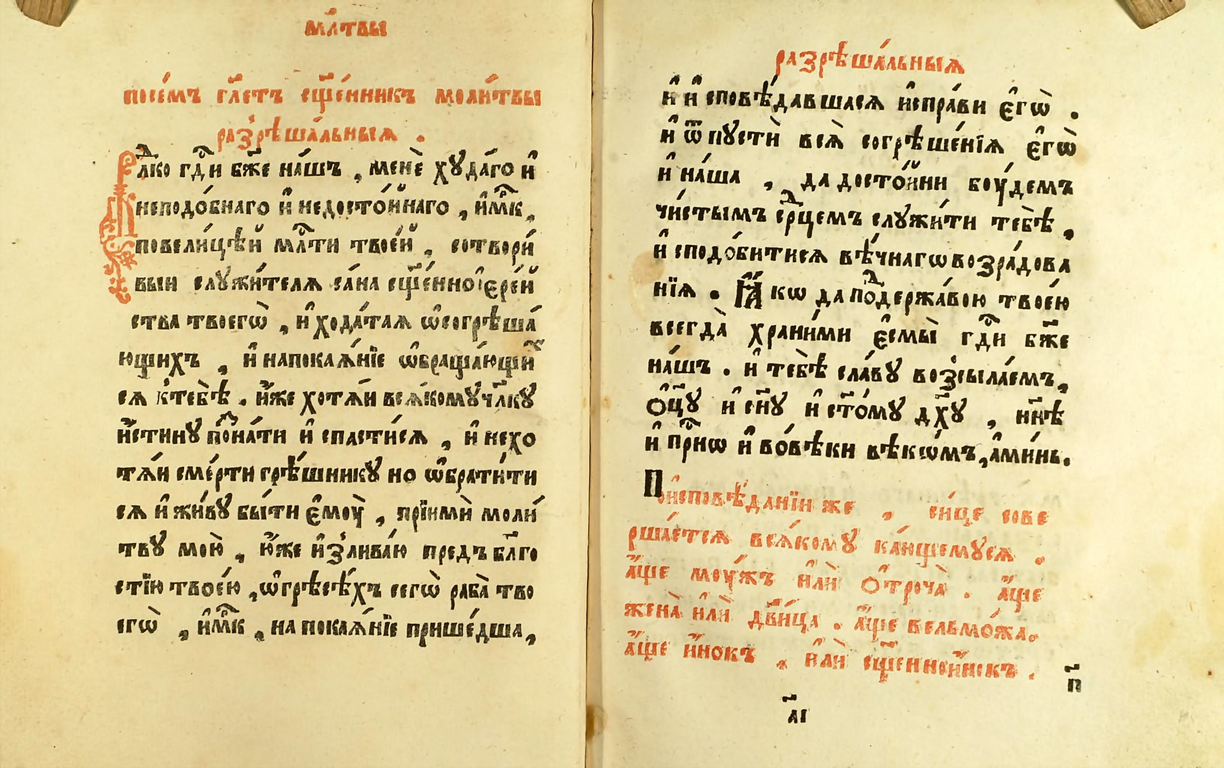 мл҃твы
посе́мъ гл҃етъ сщ҃е́нникъ моли́твы
разрѣша́льныя .
Влⷣко гдⷭ҇и бж҃е на́шъ , менѐ хꙋда́го и҆
неподо́бнаго и҆ недосто́йнаго , и҆мⷬ҇къ ,
повели́цѣй млⷭ҇ти твое́й , сотвори́
выи служи́телꙗ са́на сщ҃е́нноїере́й
ства твоегѡ̀ , и҆ хода́таꙗ ѡ҆согрѣша́
ющихъ , и҆ напокаꙗ́нїе ѡ҆браща́ющиⷯ
сꙗ ктебѣ̀ . и҆́же хотꙗ́й всꙗ́комꙋ чл҃кꙋ
и҆́стинꙋ поⷥна́ти и҆ спасти́сꙗ , и҆ нехо
тꙗ́й сме́рти грѣ́шникꙋ но ѡ҆брати́ти
сꙗ и҆ жи́вꙋ бы́ти є҆моу̀ , прїимѝ моли́
твꙋ мою̀ , ю҆́же и҆злива́ю предъ бл҃го
стїю твое́ю , ѡ҆грѣсѣ́хъ сегѡ̀ раба̀ тво
егѡ̀ , и҆мⷬ҇къ , на покаꙗ́нїе прише́дша ,
разрѣша́льныя
и҆ и҆сповѣ́давшасꙗ и҆спра́ви є҆го̀ .
и҆ ѿпустѝ всꙗ̀ согрѣше́нїꙗ є҆гѡ̀
и҆ на́ша , да досто́йни боу́демъ
чи́стымъ срⷣцемъ слꙋжи́ти тебѣ̀ ,
и҆ сподо́битисꙗ вѣ́чнагѡ возра́дова
нїꙗ . Ꙗ҆́кѡ да поⷣдержа́вою твое́ю
всегда̀ храни́ми є҆смы̀ гдⷭ҇и бж҃е
на́шъ . и҆ тебѣ̀ сла́вꙋ возсыла́емъ ,
ѻ҆ц҃ꙋ̀ и҆ сн҃ꙋ и҆ ст҃о́мꙋ дх҃ꙋ , нн҃ѣ
и҆ прⷭ҇нѡ и҆ во́вѣки вѣкѡ́мъ , а҆ми́нь .
Поисповѣ́данїи же , си́це сове
рша́етсꙗ всꙗ́комꙋ ка́ющемꙋсꙗ .
а҆́ще моу́жъ и҆лѝ ѻ҆́троча̀ . а҆́ще
жена̀ и҆лѝ дв҃и́ца . а҆́ще вельмо́жа .
а҆́ще и҆́нокъ , и҆лѝ сщ҃енноино́къ .
п҃
а҃і